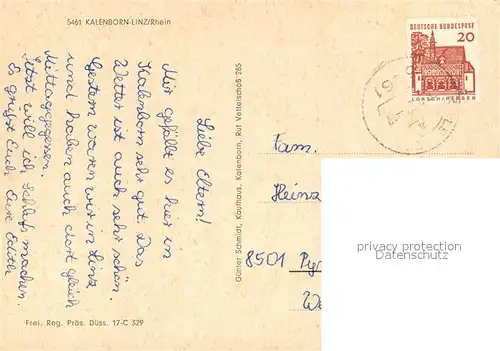 5461 KALENBORN-LINZ/Rhein
Liebe Eltern!
Mir gefällt es hier in
Kalenborn sehr gut. Das
Wetter ist auch sehr schön.
Gestern waren wir in Linz
und haben auch dort gleich
Mittaggegessen.
Jetzt will ich Schluß machen.
Es grüßt Euch Eure Edith
Frei. Reg. Präs. Düss. 17-C 329
Günter Schmidt, Kaufhaus, Kalenborn, Ruf Vettelschoß 285
DEUTSCHE BUNDESPOST
20
LORSCH/HESSEN
5461
Fam.
Heinz
8501
privacy protection
watermark for